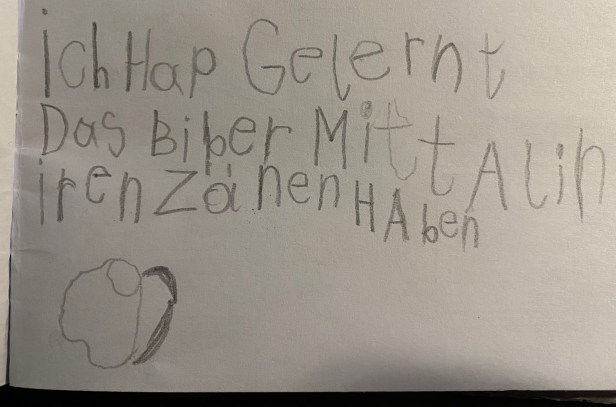 ich Hap Gelernt
Das Biber Mitt Alin
iren Zänen HAben